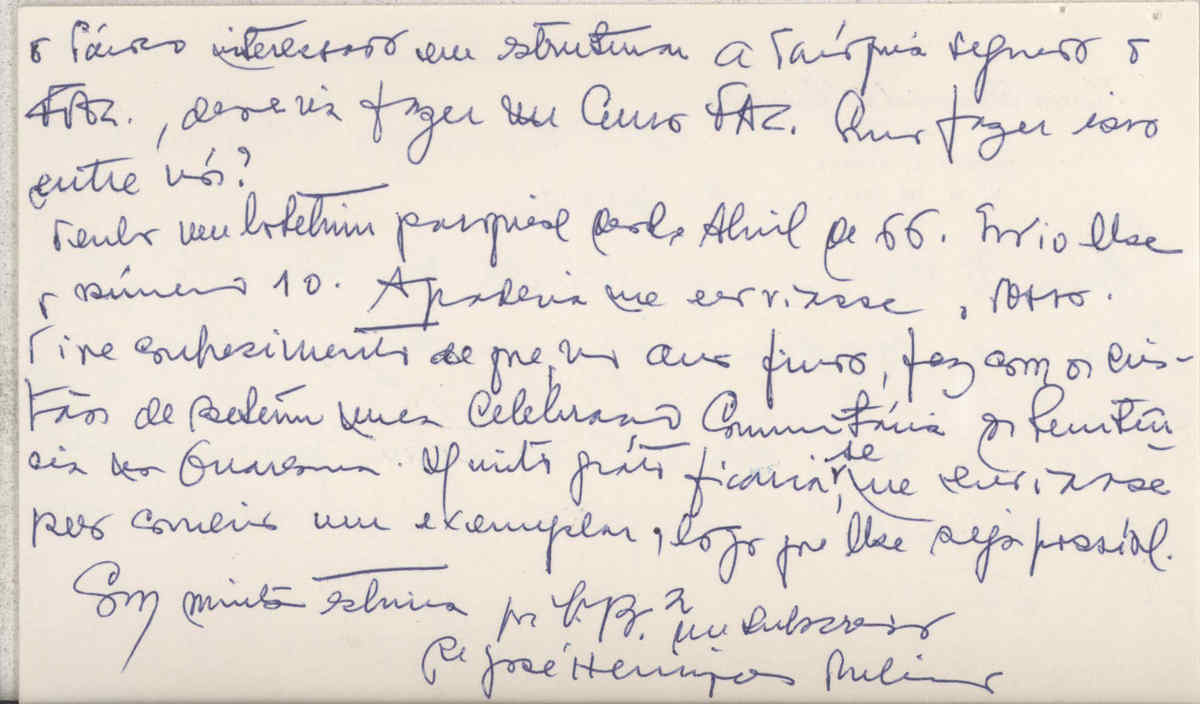 o Pároco interessado em estruturar a Paróquia segundo o
FAC., deveria fazer um Curso FAC. Quer fazer isso
entre nós?
Tenho um boletim paroquial desde Abril de 66. Envio-lhe
o número 10. A poderia me enviasse, 
Tive conhecimento de que, no ano findo, fez com os cris-
tãos de Setém uma Celebração Comunitária da Penitên-
cia na Quaresma. Muito grato ficaria, se me enviasse
por correio um exemplar, logo que lhe seja possível.
Com muita estima por V. R.ª me subscrevo
Pe José Henriques